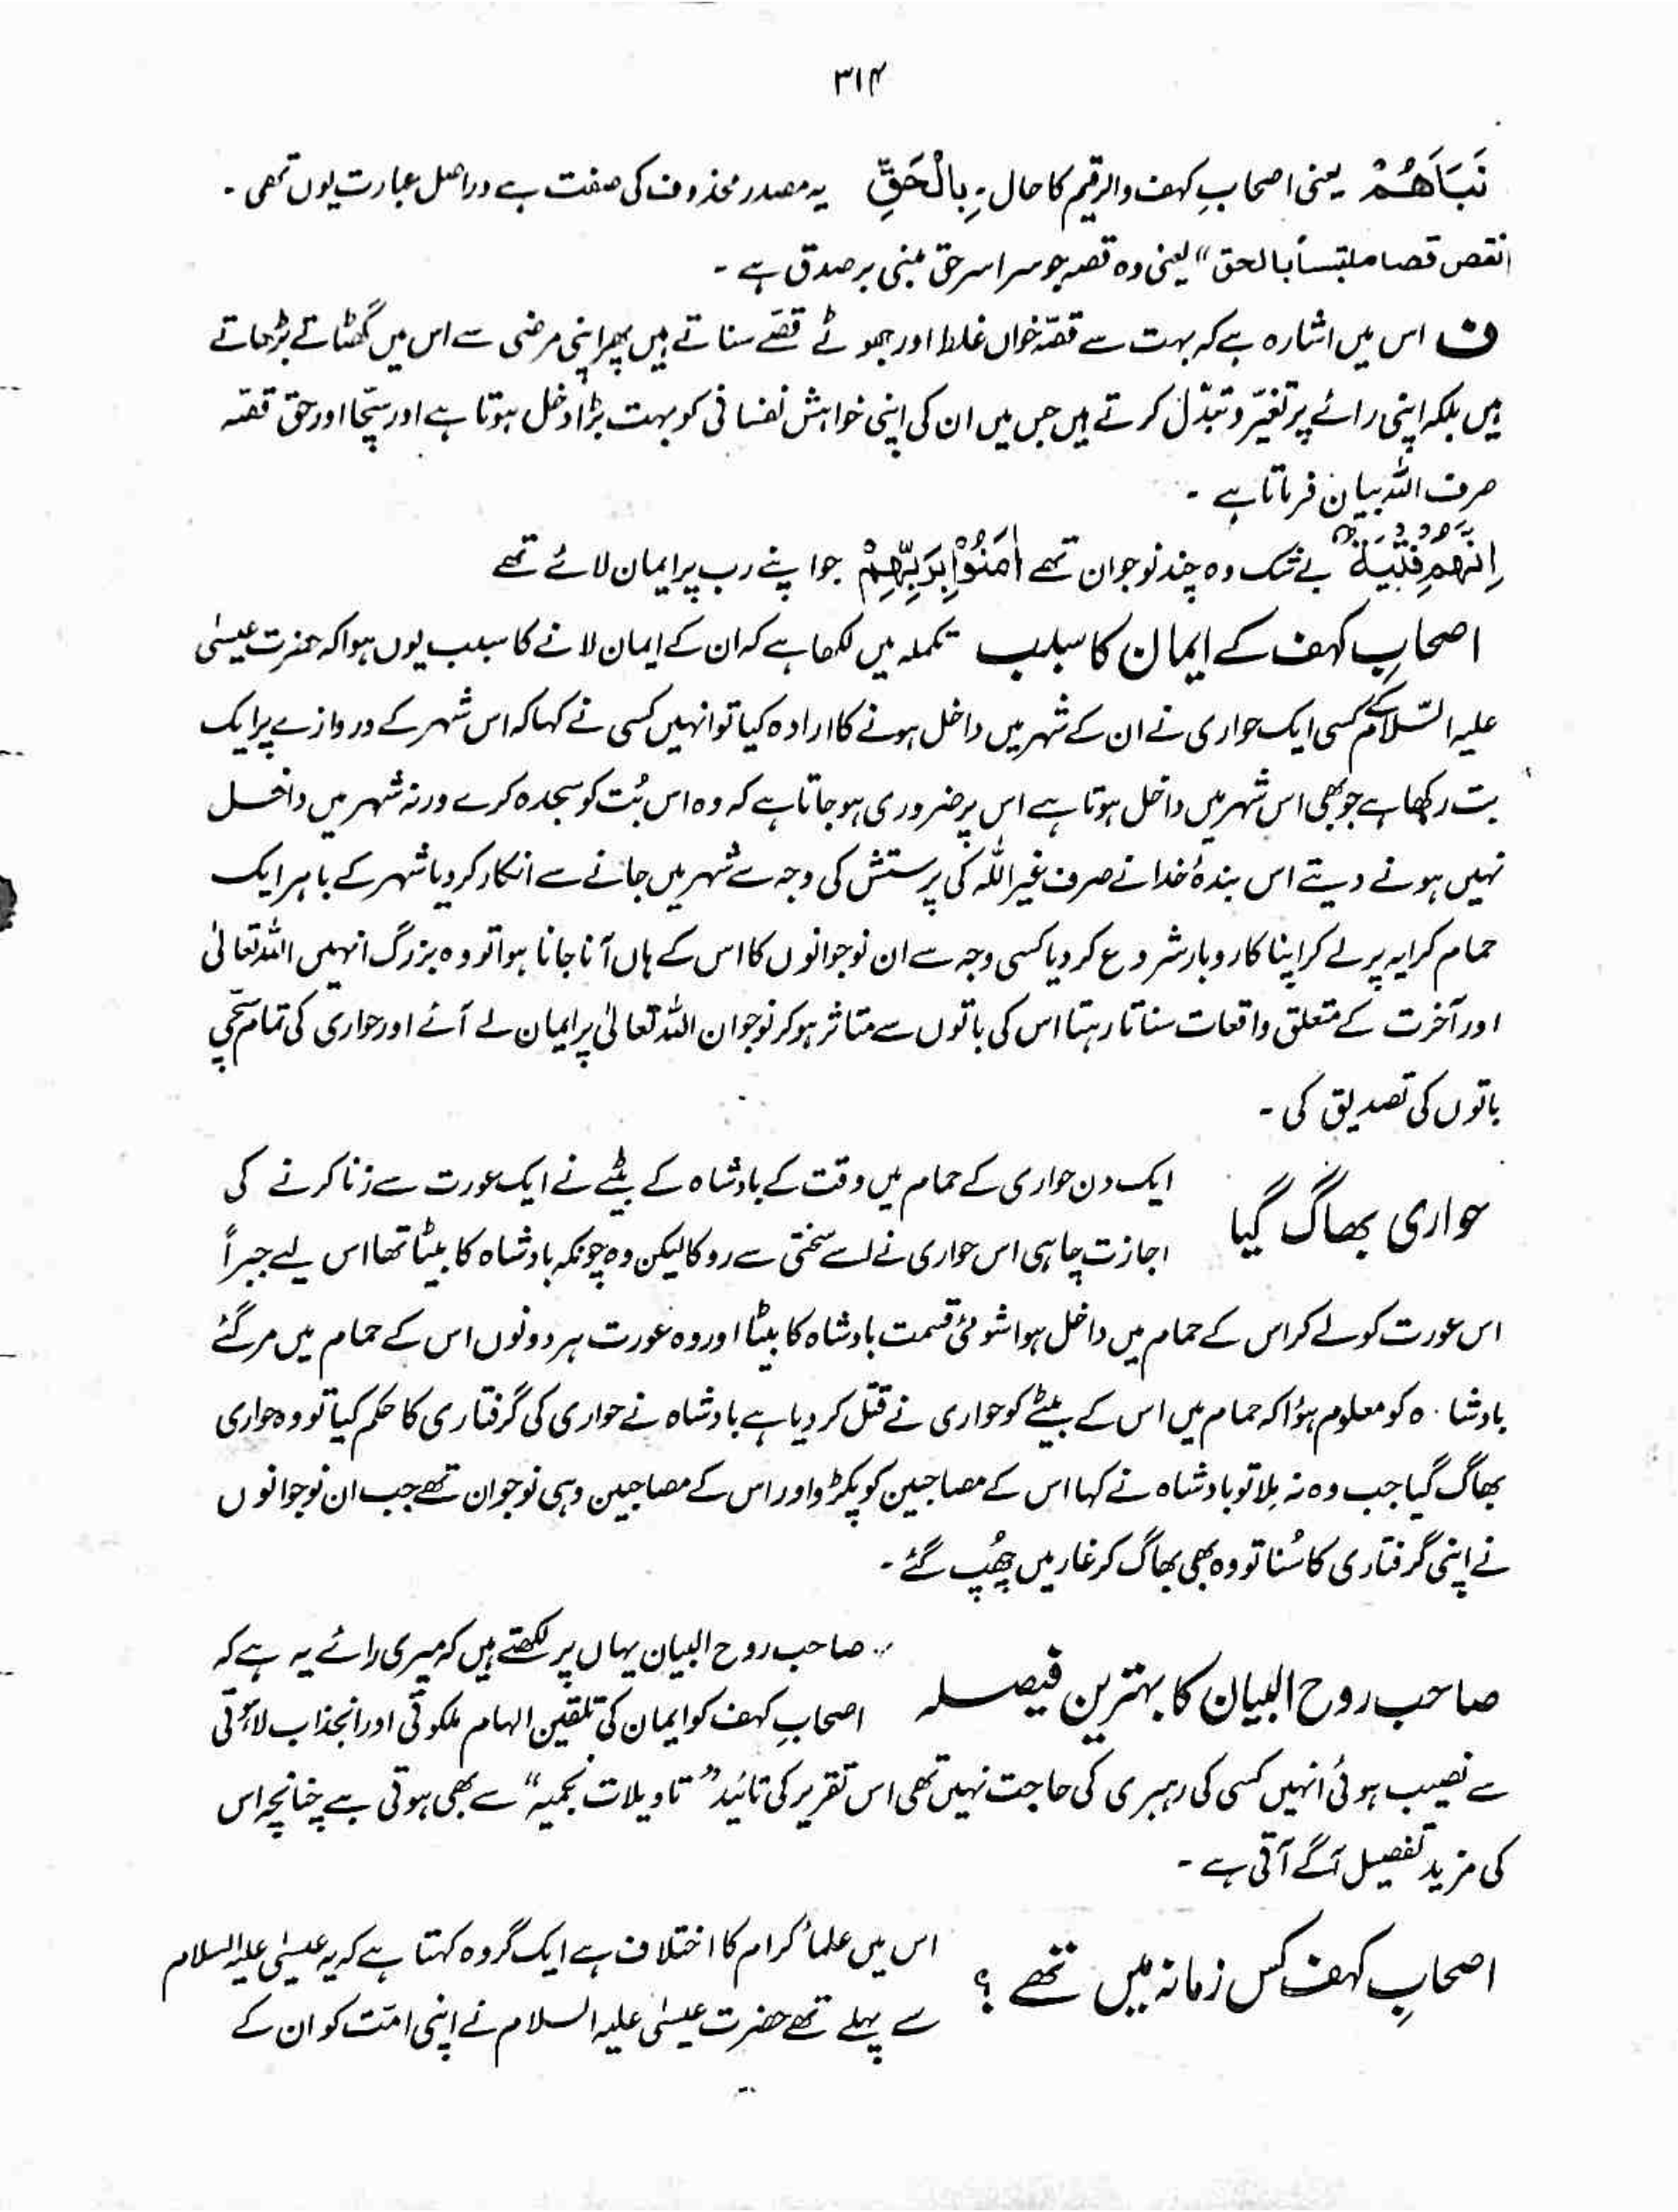 ۳۱۴
نَبَاَهُمْ یعنی اصحابِ کہف والرقیم کا حال ۔ بِالْحَقِّ یہ مصدر محذوف کی صفت ہے دراصل عبارت یوں تھی ۔
انقص قصا ملتبساً بالحق“ یعنی وہ قصہ جو سراسر حق مبنی بر صدق ہے ۔
ف اس میں اشارہ ہے کہ بہت سے قصّہ خواں غلط اور جھوٹے قصّے سناتے ہیں پھر اپنی مرضی سے اس میں گھٹاتے بڑھاتے
ہیں بلکہ اپنی رائے پر تغیّر و تبدّل کرتے ہیں جس میں ان کی اپنی خواہش نفسانی کو بہت بڑا دخل ہوتا ہے اور سچّا اور حق قصّہ
صرف اللہ بیان فرماتا ہے ۔
اِنَّھُمْ فِتْیَۃٌ بے شک وہ چند نوجوان تھے اٰمَنُوْا بِرَبِّھِمْ جو اپنے رب پر ایمان لائے تھے
اصحابِ کہف کے ایمان کا سبب تکملہ میں لکھا ہے کہ ان کے ایمان لانے کا سبب یوں ہوا کہ حضرت عیسیٰ
علیہ السّلام کے کسی ایک حواری نے ان کے شہر میں داخل ہونے کا ارادہ کیا تو انہیں کسی نے کہا کہ اس شہر کے دروازے پر ایک
بت رکھا ہے جو بھی اس شہر میں داخل ہوتا ہے اس پر ضروری ہو جاتا ہے کہ وہ اس بُت کو سجدہ کرے ورنہ شہر میں داخل
نہیں ہونے دیتے اس بندۂ خدا نے صرف غیر اللہ کی پرستش کی وجہ سے شہر میں جانے سے انکار کر دیا شہر کے باہر ایک
حمام کرایہ پر لے کر اپنا کاروبار شروع کر دیا کسی وجہ سے ان نوجوانوں کا اس کے ہاں آنا جانا ہوا تو وہ بزرگ انہیں اللہ تعالیٰ
اور آخرت کے متعلق واقعات سناتا رہتا اس کی باتوں سے متاثر ہو کر نوجوان اللہ تعالیٰ پر ایمان لے آئے اور حواری کی تمام سچّی
باتوں کی تصدیق کی ۔
حواری بھاگ گیا ایک دن حواری کے حمام میں وقت کے بادشاہ کے بیٹے نے ایک عورت سے زنا کرنے کی
اجازت چاہی اس حواری نے اسے سختی سے روکا لیکن وہ چونکہ بادشاہ کا بیٹا تھا اس لیے جبراً
اس عورت کو لے کر اس کے حمام میں داخل ہوا شومئی قسمت بادشاہ کا بیٹا اور وہ عورت ہر دونوں اس کے حمام میں مر گئے
بادشاہ کو معلوم ہؤا کہ حمام میں اس کے بیٹے کو حواری نے قتل کر دیا ہے بادشاہ نے حواری کی گرفتاری کا حکم کیا تو وہ حواری
بھاگ گیا جب وہ نہ ملا تو بادشاہ نے کہا اس کے مصاحبین کو پکڑو اور اس کے مصاحبین وہی نوجوان تھے جب ان نوجوانوں
نے اپنی گرفتاری کا سُنا تو وہ بھی بھاگ کر غار میں چھُپ گئے ۔
صاحب روح البیان کا بہترین فیصلہ صاحب روح البیان یہاں پر لکھتے ہیں کہ میری رائے یہ ہے کہ
اصحابِ کہف کو ایمان کی تلقین الہام ملکوتی اور انجذاب لاہوتی
سے نصیب ہوئی انہیں کسی کی رہبری کی حاجت نہیں تھی اس تقریر کی تائید ”تاویلات نجمیہ“ سے بھی ہوتی ہے چنانچہ اس
کی مزید تفصیل آگے آتی ہے ۔
اصحابِ کہف کس زمانہ میں تھے ؟ اس میں علمأ کرام کا اختلاف ہے ایک گروہ کہتا ہے کہ یہ عیسیٰ علیہ السلام
سے پہلے تھے حضرت عیسٰی علیہ السلام نے اپنی امّت کو ان کے